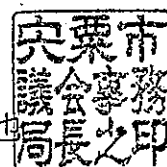 宍粟市
議会事務
局長之印